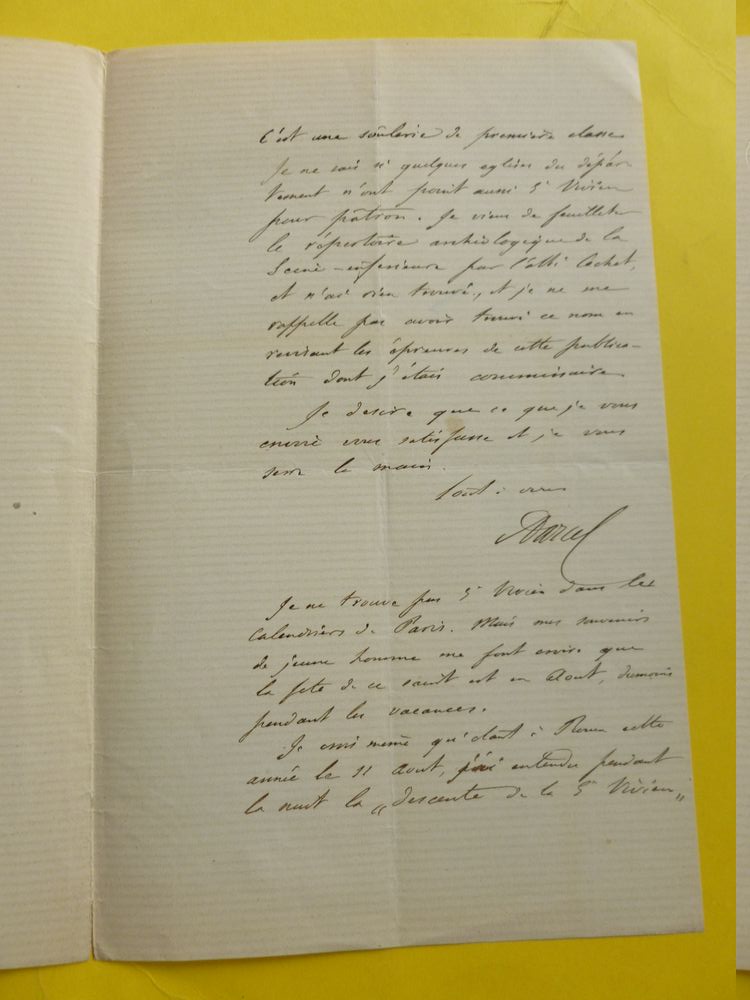 C'est une soûlerie de première classe
Je ne sais si quelques eglises du dépar
tement n'ont point aussi St Vivien
pour pâtron. Je viens de feuilleter
le répertoire archéologique de la
Seine-inferieure par l'abbé Cochet,
et n'ai rien trouvé, et je ne me
rappelle pas avoir trouvé ce nom en
revisant les épreuves de cette publica-
tion dont j'étais commissaire
Je desire que ce que je vous
envoie vous satisfasse et je vous
serre la main.
Tout à vous
ADarcel
Je ne trouve pas St Vivien dans les
Calendriers de Paris. Mais mes souvenirs
de jeune homme me font croire que
la fête de ce saint est en Aout, dumoins
pendant les vacances.
Je crois même qu'étant à Rouen cette
année le 31 Aout, j'ai entendu pendant
la nuit la „descente de la St Vivien„